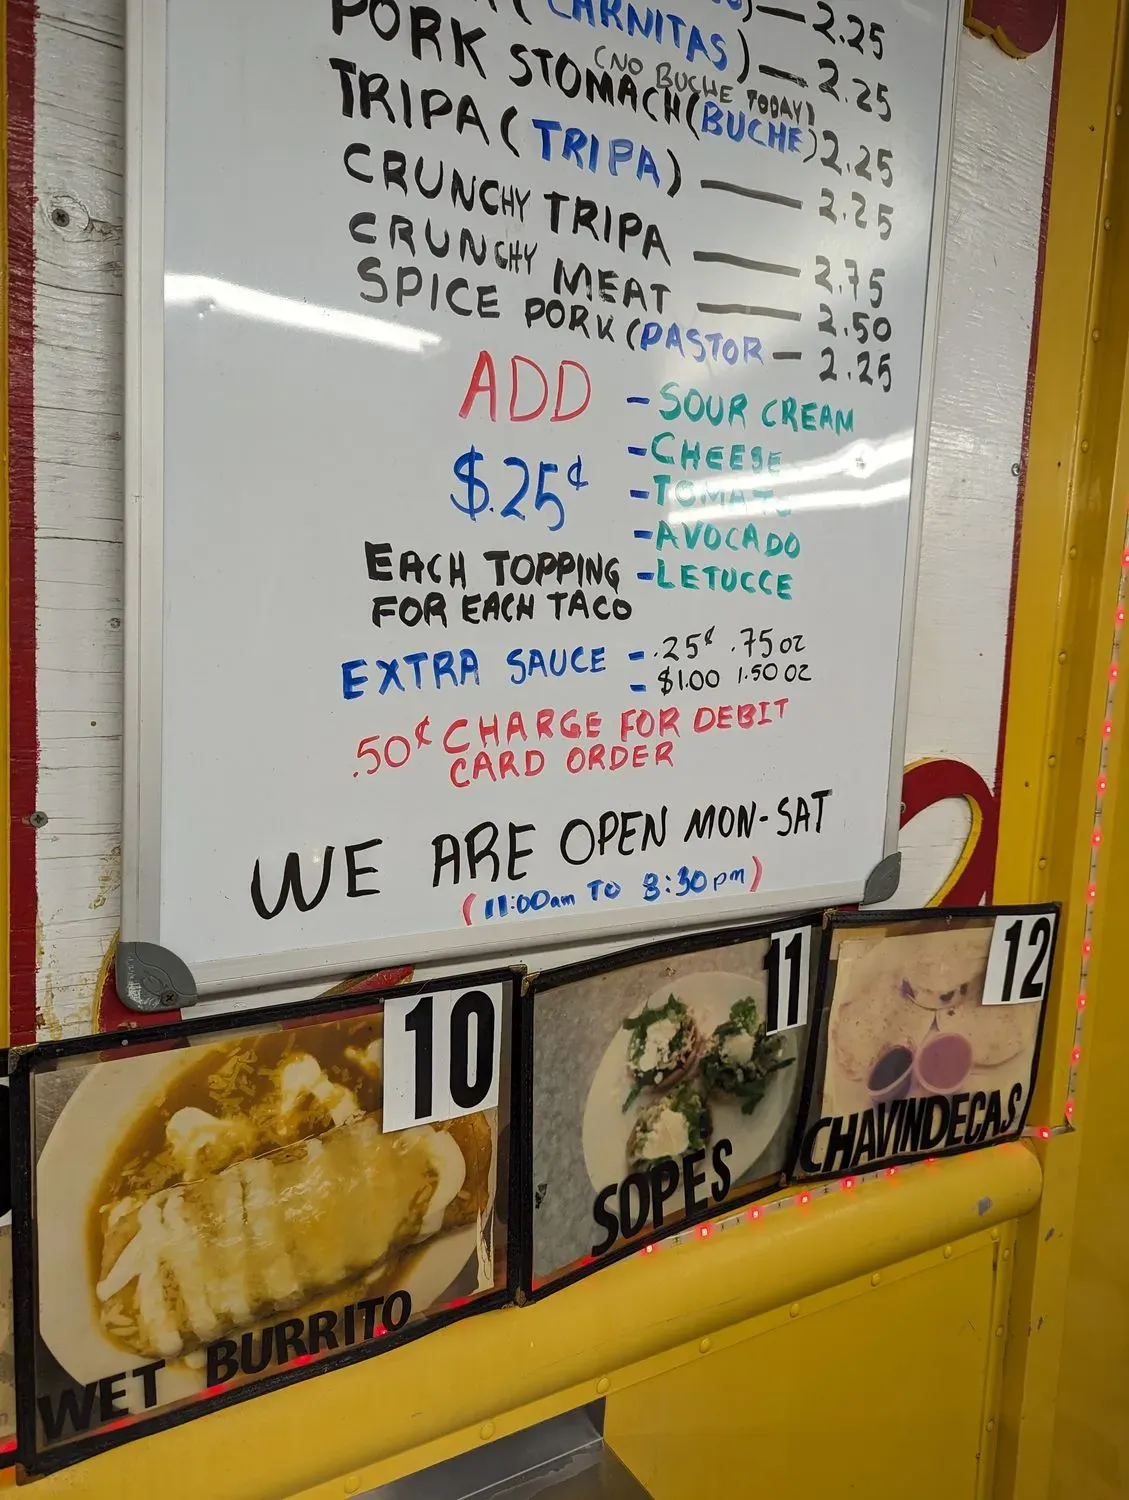 2.25
(CARNITAS) — 2.25
(NO BUCHE TODAY)
PORK STOMACH (BUCHE) 2.25
TRIPA (TRIPA) — 2.25
CRUNCHY TRIPA — 2.75
CRUNCHY MEAT — 2.50
SPICE PORK (PASTOR — 2.25
ADD
$.25¢
EACH TOPPING
FOR EACH TACO
- SOUR CREAM
- CHEESE
- TOMATO
- AVOCADO
- LETUCCE
EXTRA SAUCE - .25¢ .75 oz
- $1.00 1.50 OZ
.50¢ CHARGE FOR DEBIT
CARD ORDER
WE ARE OPEN MON-SAT
(11:00am TO 8:30pm)
10
WET BURRITO
11
SOPES
12
CHAVINDECAS